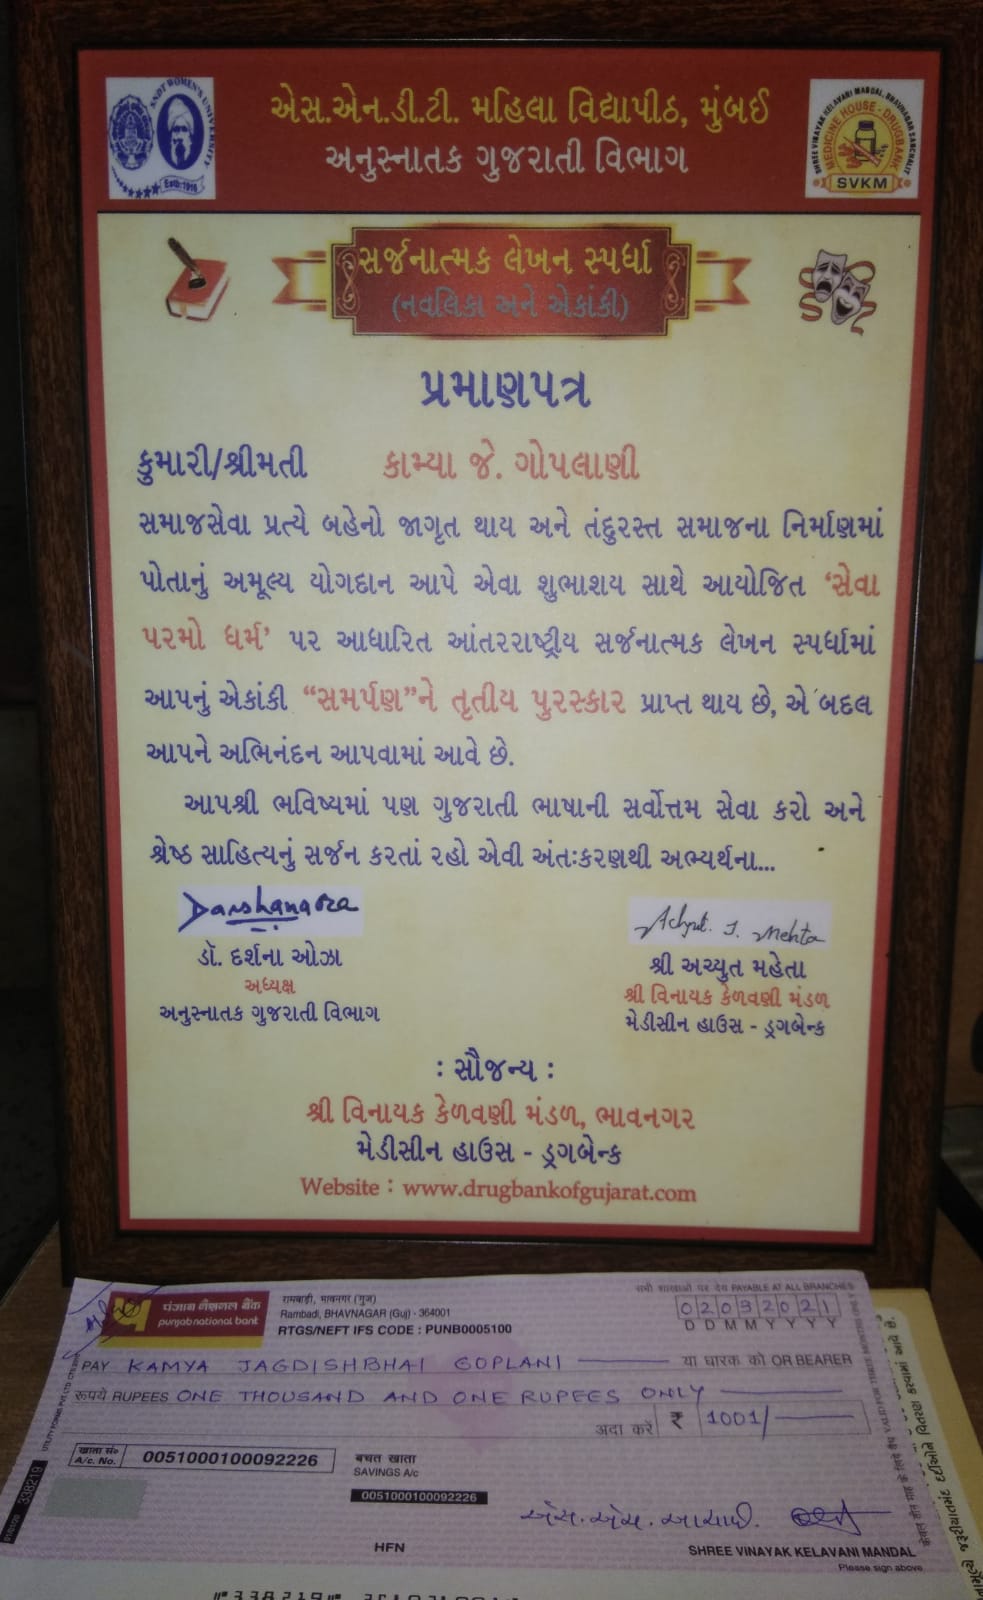 એસ.એન.ડી.ટી. મહિલા વિદ્યાપીઠ, મુંબઈ
અનુસ્નાતક ગુજરાતી વિભાગ
SNDT WOMEN'S UNIVERSITY
Estd.1916
SHREE VINAYAK KELAVANI MANDAL, BHAVNAGAR SANCHALIT
MEDICINE HOUSE - DRUGBANK
SVKM
સર્જનાત્મક લેખન સ્પર્ધા
(નવલિકા અને એકાંકી)
પ્રમાણપત્ર
કુમારી/શ્રીમતી કામ્યા જે. ગોપલાણી
સમાજસેવા પ્રત્યે બહેનો જાગૃત થાય અને તંદુરસ્ત સમાજના નિર્માણમાં
પોતાનું અમૂલ્ય યોગદાન આપે એવા શુભાશય સાથે આયોજિત ‘સેવા
પરમો ધર્મ’ પર આધારિત આંતરરાષ્ટ્રીય સર્જનાત્મક લેખન સ્પર્ધામાં
આપનું એકાંકી “સમર્પણ”ને તૃતીય પુરસ્કાર પ્રાપ્ત થાય છે, એ બદલ
આપને અભિનંદન આપવામાં આવે છે.
આપશ્રી ભવિષ્યમાં પણ ગુજરાતી ભાષાની સર્વોત્તમ સેવા કરો અને
શ્રેષ્ઠ સાહિત્યનું સર્જન કરતાં રહો એવી અંતઃકરણથી અભ્યર્થના...
ડૉ. દર્શના ઓઝા
અધ્યક્ષ
અનુસ્નાતક ગુજરાતી વિભાગ
Achyut. J. Mehta
શ્રી અચ્યુત મહેતા
શ્રી વિનાયક કેળવણી મંડળ
મેડીસીન હાઉસ - ડ્રગબેન્ક
: સૌજન્ય :
શ્રી વિનાયક કેળવણી મંડળ, ભાવનગર
મેડીસીન હાઉસ - ડ્રગબેન્ક
Website : www.drugbankofgujarat.com
पंजाब नैशनल बैंक
punjab national bank
रामबाड़ी, भावनगर (गुज)
Rambadi, BHAVNAGAR (Guj) - 364001
RTGS/NEFT IFS CODE : PUNB0005100
सभी शाखाओं पर देय PAYABLE AT ALL BRANCHES
02032021
D D M M Y Y Y Y
PAY KAMYA JAGDISHBHAI GOPLANI या धारक को OR BEARER
रूपये RUPEES ONE THOUSAND AND ONE RUPEES ONLY
अदा करें ₹ 1001/
खाता सं० A/c. No. 0051000100092226
बचत खाता
SAVINGS A/c
0051000100092226
338219
HFN
SHREE VINAYAK KELAVANI MANDAL
Please sign above
⑈338219⑈